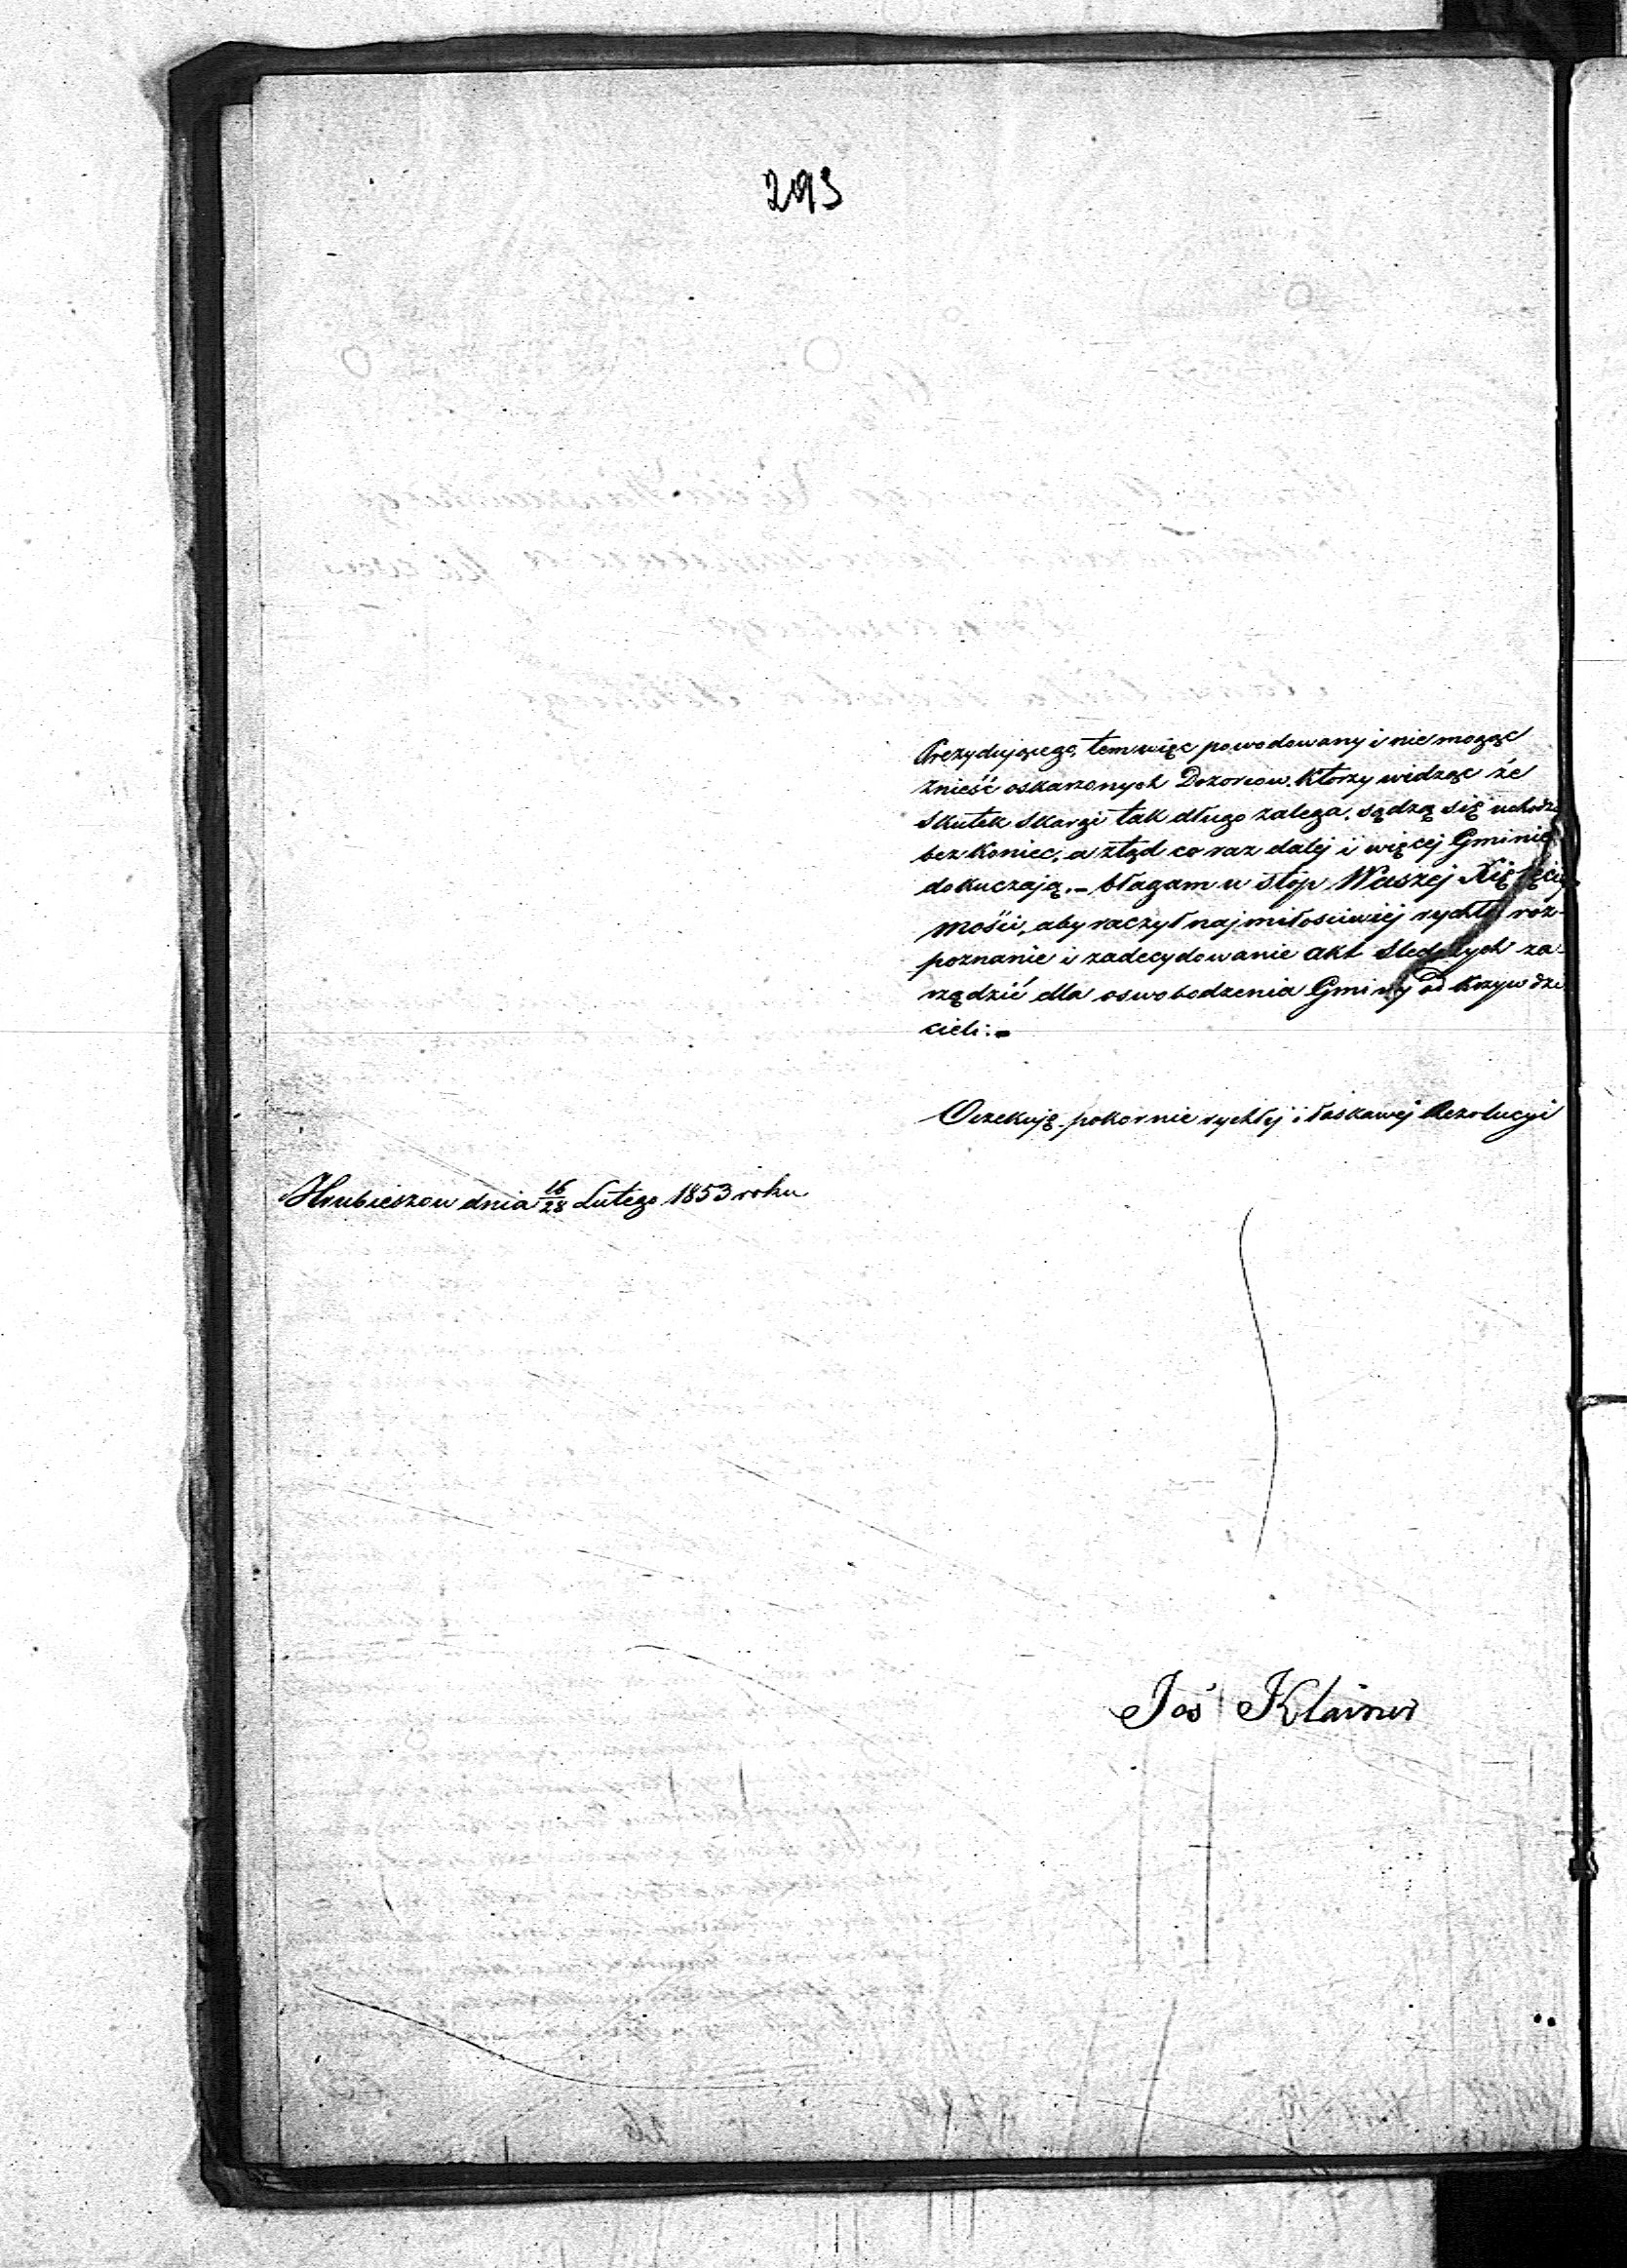 293
Prezydującego, tem więc powodowany i nie mogąc
znieść oskarzonych Dozorcow, Którzy widząc że
skutek skargi tak długo zalega, sądzą się uchodzić
bez koniec, a ztąd co raz dalej i więcej Gminie
dokuczają. – błagam u stóp Waszej Xiążęcéj
mości, aby raczył najmiłościwiéj rychłe roz-
poznanie i zadecydowanie akt śledczych za-
rządzić dla oswobodzenia Gminy od krzywdzi
cieli: –
Oczekuję pokornie rychłej i łaskawej Rezolucyi
Hrubieszow dnia 16/28 Lutego 1853 roku
Joś Klainer